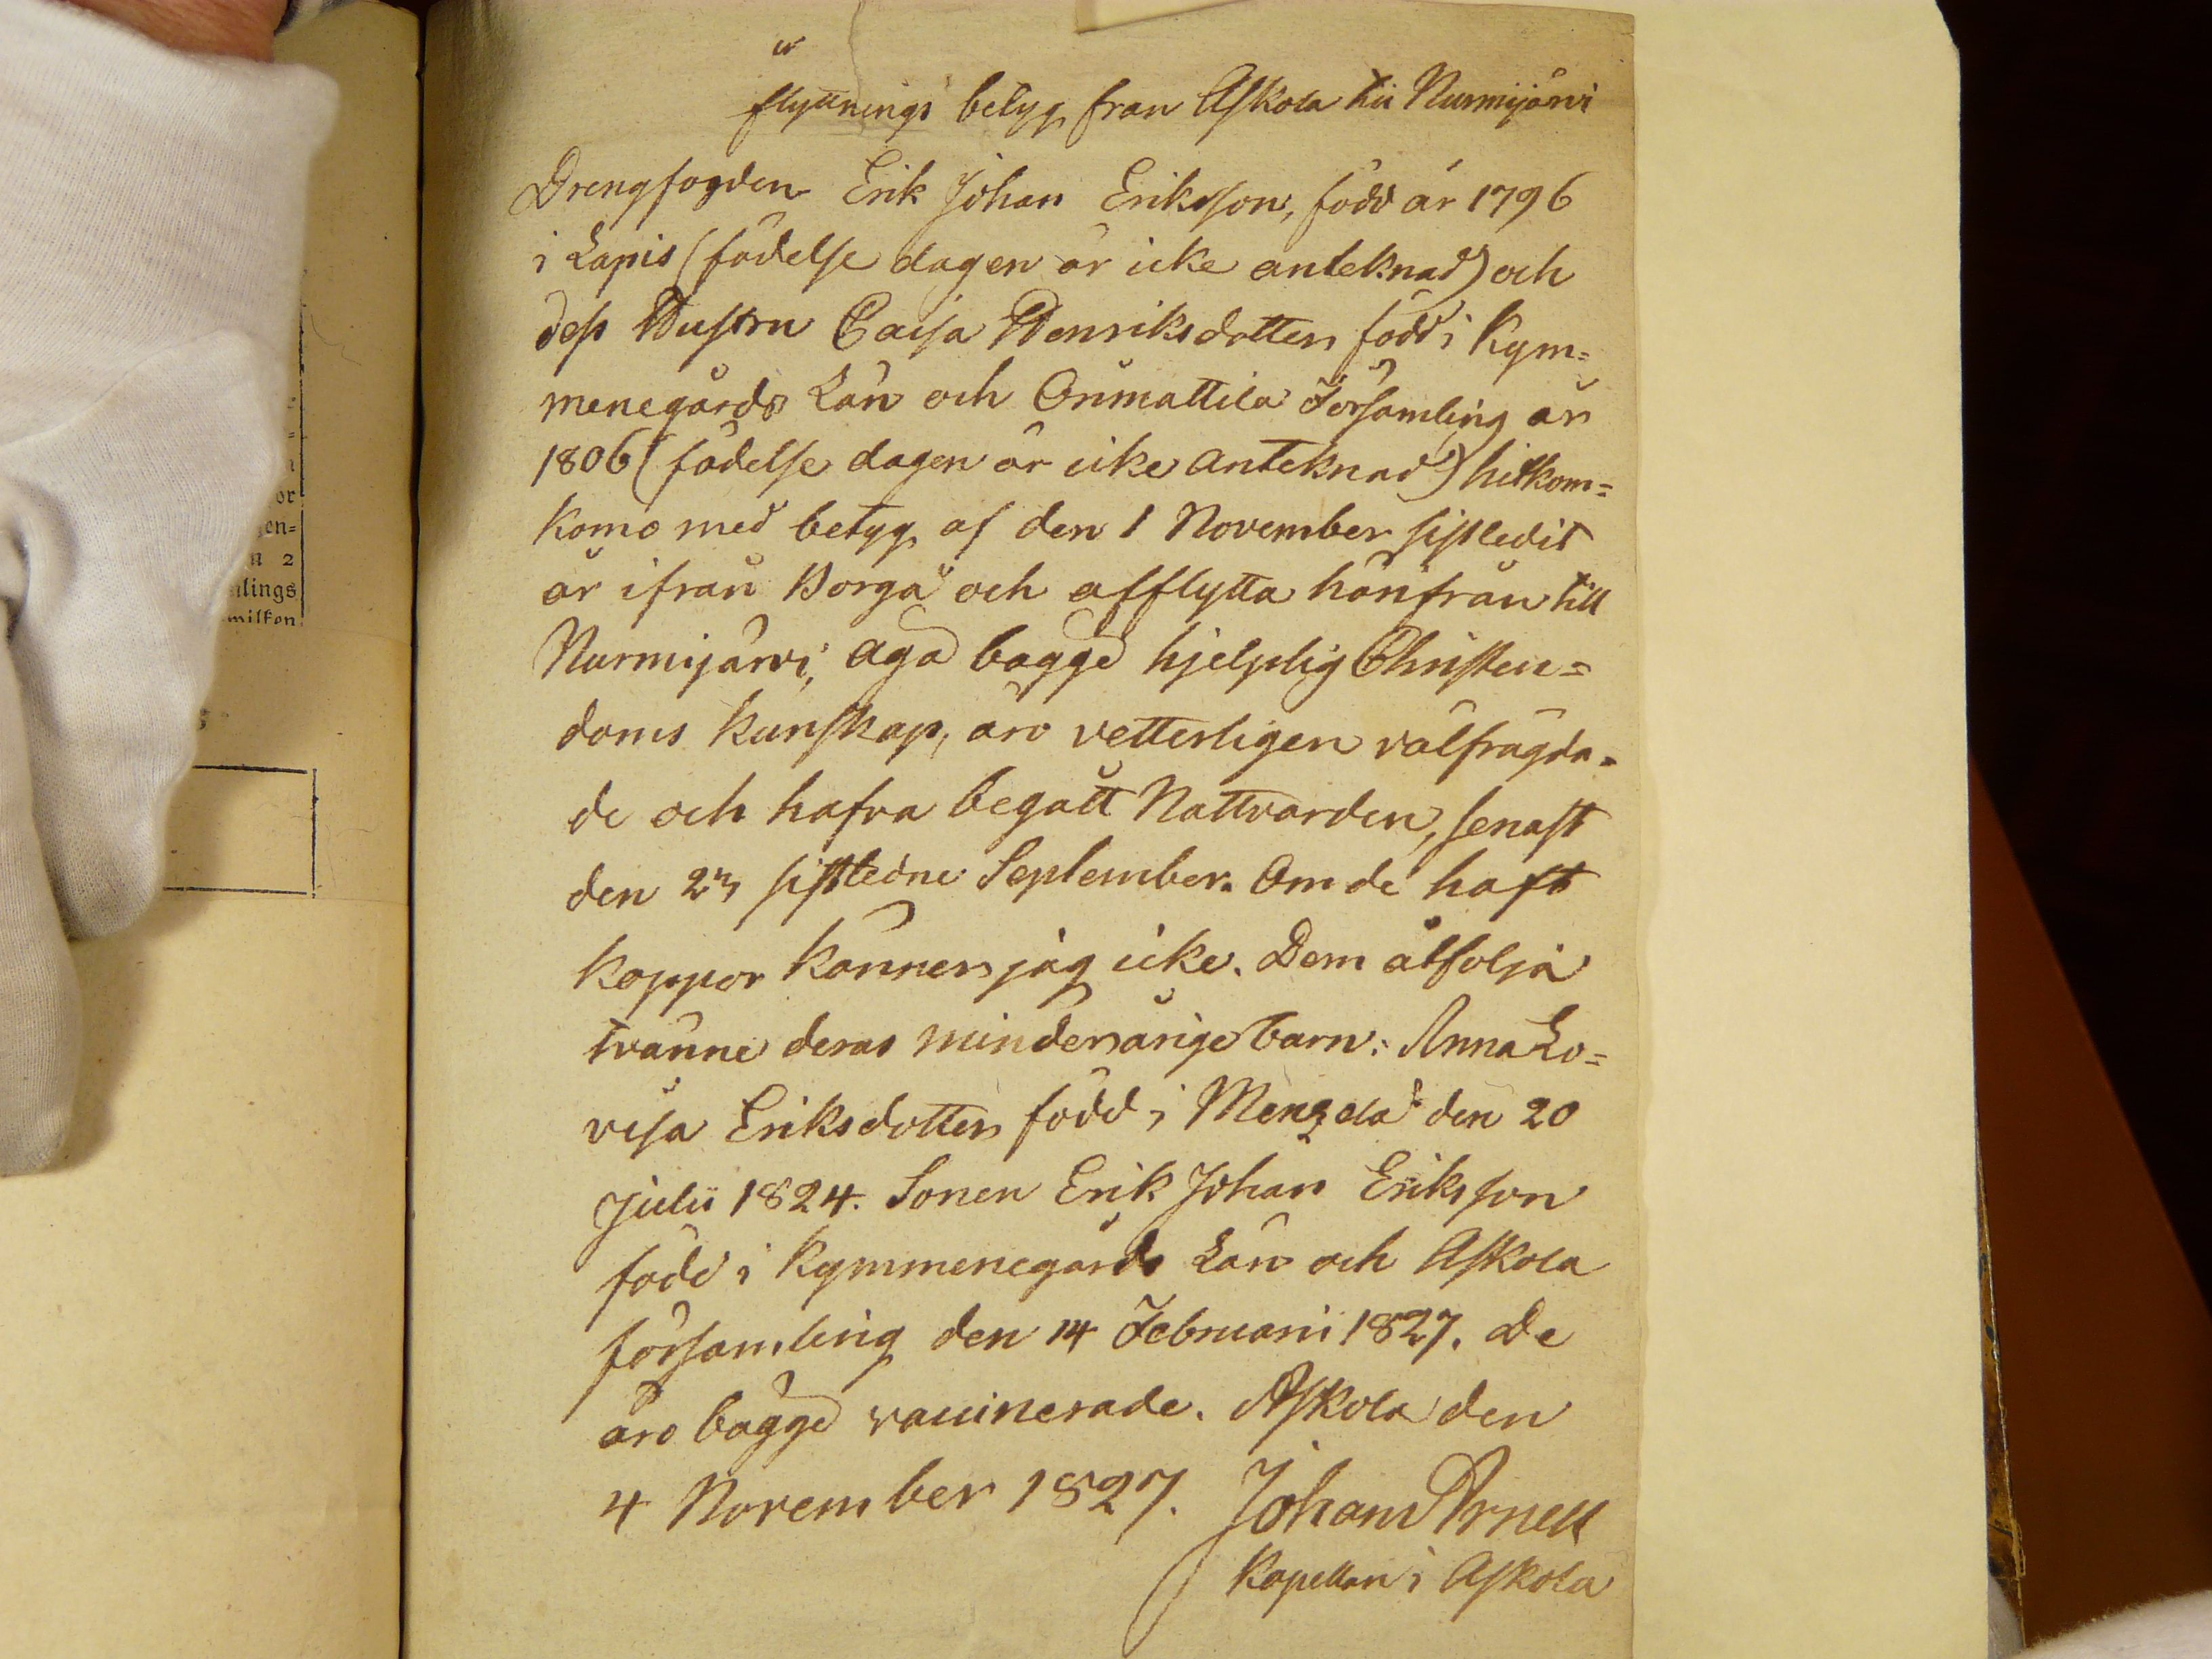 flyttnings betyg från Askola till Nurmijärvi
Drengfogden Erik Johan Eriksson, född år 1796
i Lapis (födelse dagen är icke anteknad) och
dess Hustru Caisa Henriksdotter född i Kym=
menegårds Län och Orimattila Församling år
1806 (födelse dagen är icke anteknad) hitkom=
komo med betyg af den 1 November sistledit
år ifrån Borgå och afflytta hänifrån till
Nurmijärvi, äga bägge hjelplig Christen=
doms kunskap, äro vetterligen välfrägda=
de och hafva begått Nattvarden, senast
den 23 sistledne September. Om de haft
koppor känner jag icke. Dem åtfölja
tvänne deras minderårige barn: Anna Lo=
visa Eriksdotter född i den 20
Julii 1824. Sonen Erik Johan Eriksson
född i Kymmenegårds Län och Askola
församling den 14 Februarii 1827. De
äro bägge vaccinerade. Askola den
4 November 1827. Johan Arnell
Kapellan i Askola
or
en=
n 2
lings
milken